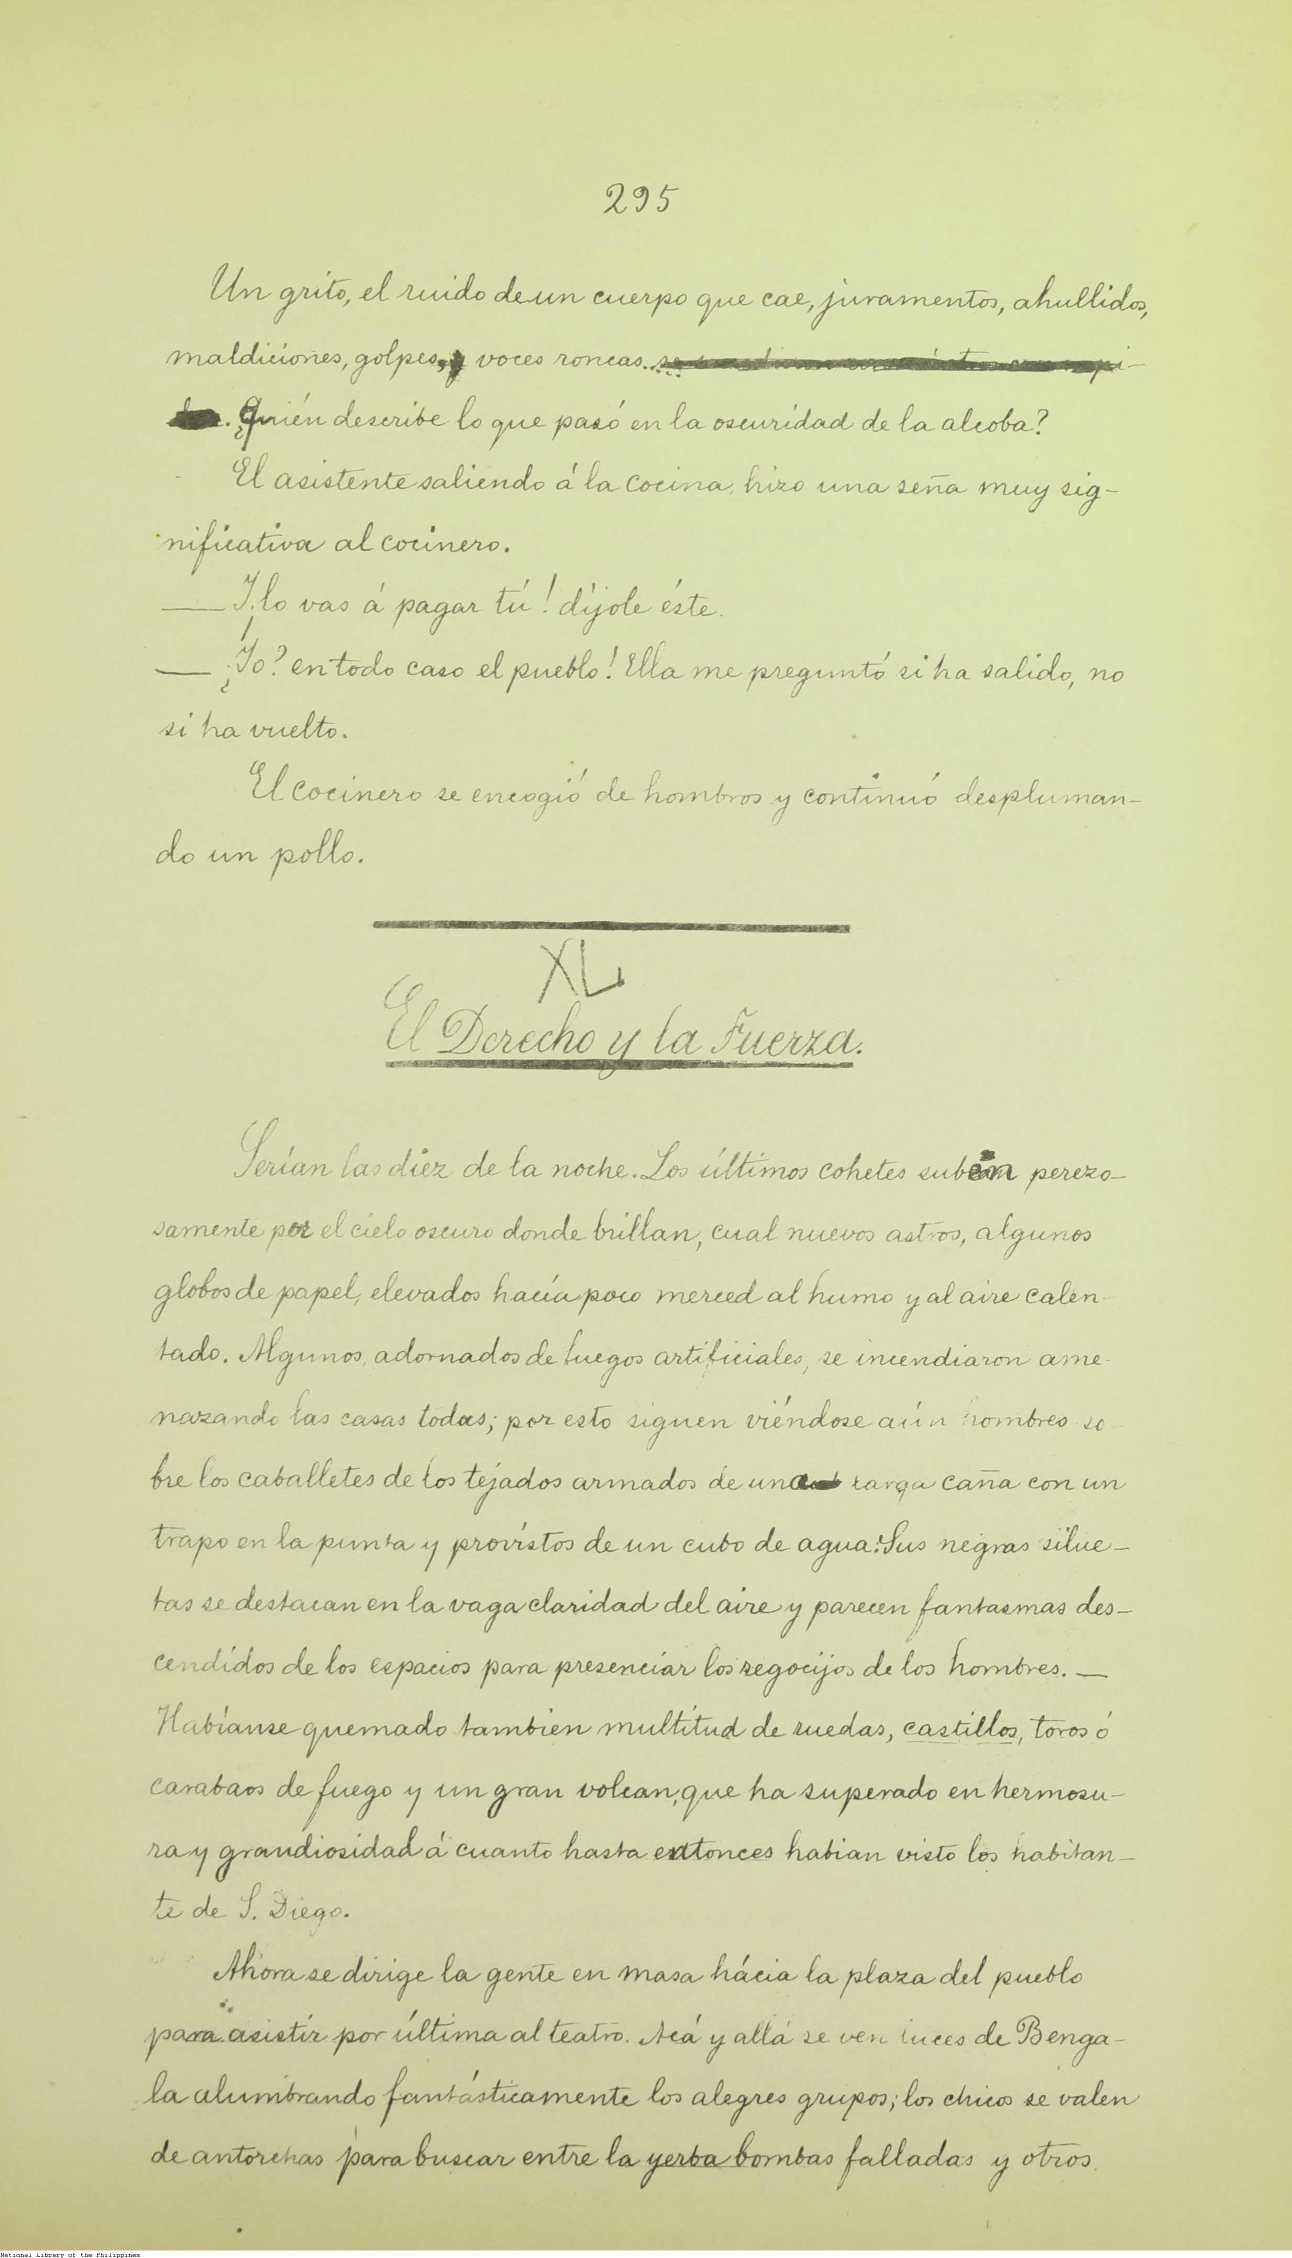 295
Un grito, el ruido de un cuerpo que cae, juramentos, ahullidos,
maldiciones, golpes, voces roncas...
¿Quién describe lo que pasó en la oscuridad de la alcoba?
El asistente saliendo á la cocina, hizo una seña muy sig-
nificativa al cocinero.
— ¡Y lo vas á pagar tú! díjole éste.
— ¿Yo? en todo caso el pueblo! Ella me preguntó si ha salido, no
si ha vuelto.
El cocinero se encogió de hombros y continuó despluman-
do un pollo.
XL
El Derecho y la Fuerza.
Serían las diez de la noche. Los últimos cohetes suben perezo-
samente por el cielo oscuro donde brillan, cual nuevos astros, algunos
globos de papel, elevados hacía poco merced al humo y al aire calen-
tado. Algunos, adornados de fuegos artificiales, se incendiaron ame-
nazando las casas todas; por esto siguen viéndose aún hombres so-
bre los caballetes de los tejados armados de una larga caña con un
trapo en la punta y provistos de un cubo de agua. Sus negras silue-
tas se destacan en la vaga claridad del aire y parecen fantasmas des-
cendidos de los espacios para presenciar los regocijos de los hombres. —
Habíanse quemado tambien multitud de ruedas, castillos, toros ó
carabaos de fuego y un gran volcan, que ha superado en hermosu-
ra y grandiosidad á cuanto hasta entonces habian visto los habitan-
te de S. Diego.
Ahora se dirige la gente en masa hácia la plaza del pueblo
para asistir por última al teatro. Acá y allá se ven luces de Benga-
la alumbrando fantásticamente los alegres grupos; los chicos se valen
de antorchas para buscar entre la yerba bombas falladas y otros
National Library of the Philippines